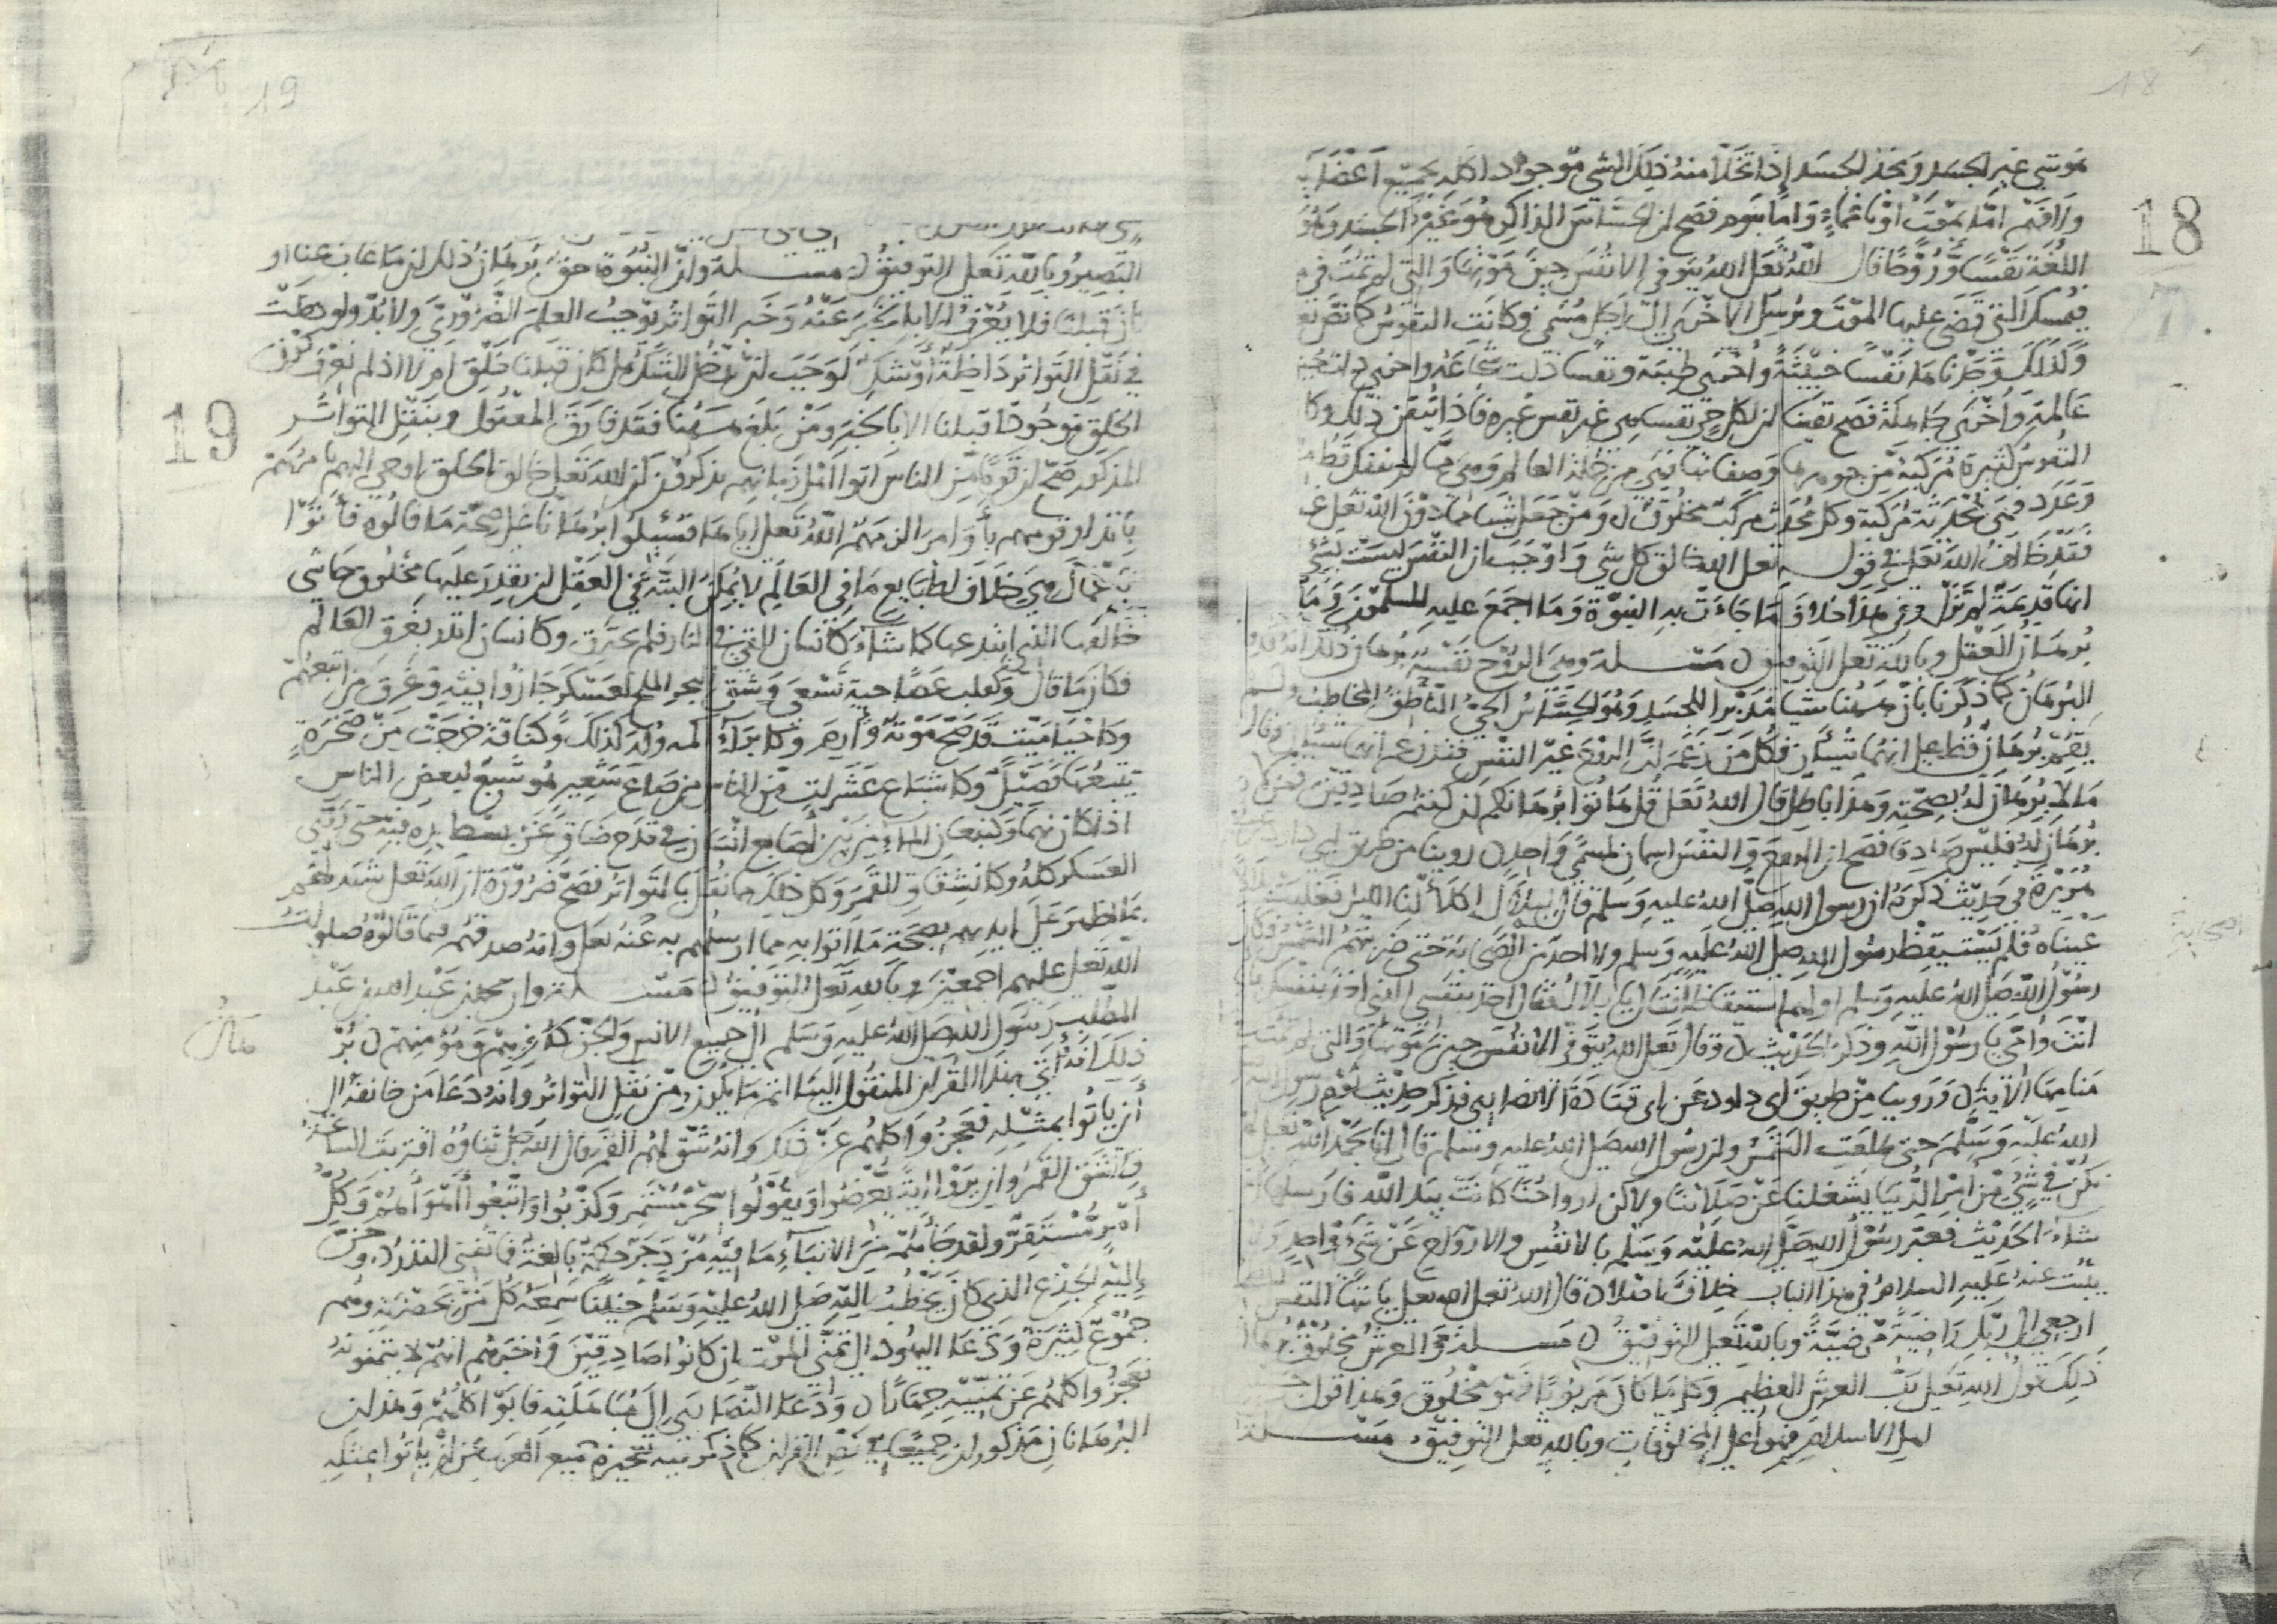 18
18
هو شي غير الجسد ونجد الجسد إذا تخلا منه ذلك الشي موجودا كله بجميع أعضايه
ولا فهم اما بموت أو باغماء واما بنوم فصح ان الحساس الذاكر هو غير الجسد وهو
اللغة نفسا وروحا قال الله تعلى الله يتوفى الانفس حين موتها والتي لم تمت في
فيمسك التي قضى عليها الموت ويرسل الاخرى إلى أجل مسمى وكانت النفوس كما نص
وكذلك وجدنا نفسا خبيثة وأخرى طيبة ونفسا ذات شجاعة واخرى ذات
عالمة وأخرى جاهلة فصح يقينا ان لكل حي نفسا هي غير نفس غيره فاذا تيقن ذلك وكا
النفوس كثيرة مركبة من جوهرها وصفاتها فهي من جملة العالم وهي ما لم ينفك قط
وعدد فهي محدثة مركبة وكل محدث مركب مخلوق ومن جعل شيا مما دون الله تعلى
فقد خالف الله تعلى في قوله تعلى الله خالق كل شي واوجب ان النفس ليست
انها قديمة لم تزل وفي هذا خلاف ما جاءت به النبوة وما اجمع عليه المسلمون وما
برهان العقل وبالله تعلى التوفيق مسلة وهي الروح نفسه برهان ذلك انه قد
البرهان كما ذكرنا بان ههنا شيا مدبرا للجسد وهو الحساس الحي الناطق المخاطب ولم
يقم برهان قط على انهما شيئان فكل من زعم ان الروح غير النفس فقد زعم انهما شيئان وقال
ما لا برهان له بصحته وهذا باطل قال الله تعلى قل هاتوا برهانكم ان كنتم صادقين فمن لا
برهان له فليس صادقا فصح ان الروح والنفس اسمان لمسمى واحد روينا من طريق أبي داود
هريرة في حديث ذكره ان رسول الله صلى الله عليه وسلم قال لبلال اكلأ لنا الليل فغلبت
عيناه فلم يستيقظ رسول الله صلى الله عليه وسلم ولا احد من الصحابة حتى ضربتهم الشمس فكان
رسول الله صلى الله عليه وسلم اولهم استيقاظا فقال يا بلال فقال اخذ بنفسي الذي اخذ بنفسك
انت وامي يا رسول الله وذكر الحديث وقال تعلى الله يتوفى الانفس حين موتها والتي لم تمت
منامها الآية وروينا من طريق ابي داود عن ابي قتادة الانصاري فذكر حديث نوم رسول الله
الله عليه وسلم حتى طلعت الشمس وان رسول الله صلى الله عليه وسلم قال انا نحمد الله
نكن في شي من امر الدنيا يشغلنا عن صلاتنا ولاكن ارواحنا كانت بيد الله فارسلها
شاء الحديث فعبر رسول الله صلى الله عليه وسلم بالانفس والارواح عن شي واحد ولا
يثبت عنه عليه السلام في هذا الباب خلاف اصلا قال الله تعلى يا ايتها النفس
ارجعي الى ربك راضية مرضية وبالله تعلى التوفيق مسلة والعرش مخلوق
ذلك قول الله تعلى رب العرش العظيم وكل ما كان مربوبا فهو مخلوق وهذا قول
اهل الاسلام فهو أعلى المخلوقات وبالله تعلى التوفيق مسلة
19
19
البصير وبالله تعلى التوفيق مسلة وان النبوة حق برهان ذلك ان ما غاب عنا او
كان قبلنا فلا يعرف الا بالخبر عنه وخبر التواتر يوجب العلم الضروري ولا بد ولو دخلت
في نقل التواتر داخلة أو شك لوجب ان يدخل الشك هل كان قبلنا خلق ام لا اذ لم نعرف كون
الخلق موجودا قبلنا الا بالخبر ومن بلغ ههنا فقد فارق المعقول وبنقل التواتر
المذكور صح ان قوما من الناس اتوا اهل زمانهم يذكرون ان الله تعلى خالق الخلق اوحى اليهم يأمرهم
بانذار قومهم بأوامر الزمهم الله تعلى اياها فسئلوا برهانا على صحة ما قالوه فأتوا
باعمال هي خلاف لطبايع ما في العالم لا يمكن البتة في العقل ان يقدر عليها مخلوق حاشى
خالقها الذي ابتدعها كما شاء كانسان القي في النار فلم يحترق وكانسان انذر بغرق العالم
فكان ما قال وكقلب عصا حية تسعى وشق البحر الملح لعسكر جازوا فيه وغرق من اتبعهم
وكاحيا ميت قد صح موته وكابراء اكمه ولد كذلك وكناقة خرجت من صخرة
يتبعها فصيل وكاشباع عشرات من الناس من صاع شعير هو شبع لبعض الناس
اذا كان نهما وكنبعان الماء من بين اصابع انسان في قدح ضاق عن بسط يده فيه حتى روي
العسكر كله وكانشقاق القمر وكل ذلك مما نقل بالتواتر فصح ضرورة ان الله تعلى شهد لهم
بما ظهر على ايديهم بصحة ما اتوا به مما ارسلهم به عنه تعلى وانه صدقهم فيما قالوه صلوات
الله تعلى عليهم اجمعين وبالله تعلى التوفيق مسلة وان محمد بن عبد الله بن عبد
المطلب رسول الله صلى الله عليه وسلم الى جميع الانس والجن كافرهم ومؤمنهم بر
هان
ذلك انه أتى بهذا القرآن المنقول الينا اتم ما يكون من نقل التواتر وانه دعا من خالفه الى
أن يأتوا بمثله فعجزوا كلهم عن ذلك وانه شق لهم القمر قال الله جل ثناؤه اقتربت الساعة
وانشق القمر وان يروا آية يعرضوا ويقولوا سحر مستمر وكذبوا واتبعوا أهواءهم وكل
أمر مستقر ولقد جاءهم من الانباء ما فيه مزدجر حكمة بالغة فما تغني النذر وحن
إليه الجذع الذي كان يخطب اليه صلى الله عليه وسلم حنينا سمعه كل من بحضرته وهم
جموع كثيرة ودعا اليهود الى تمني الموت ان كانوا صادقين واخبرهم انهم لا يتمنونه
فعجزوا كلهم عن تمنيه جهارا ودعا النصارى الى مباهلته فابوا كلهم وهذان
البرهانان مذكوران جميعا في نص القرآن كما ذكر فيه تعجيزه جميع العرب عن ان يأتوا بمثله